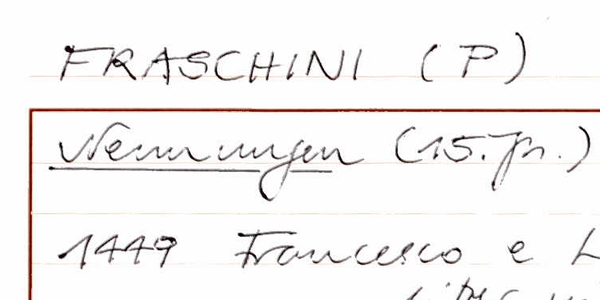 FRASCHINI (P)
Nennungen (15. Jh.)
1449 Francesco e